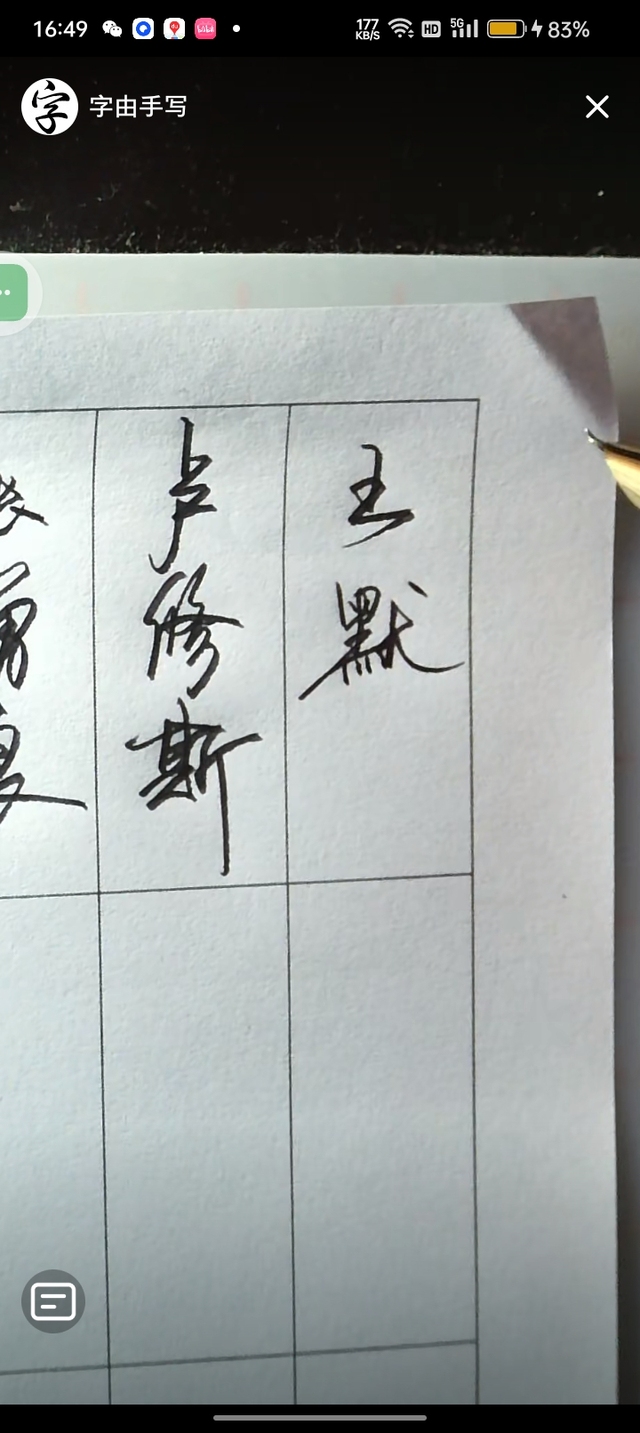 16:49
177
KB/S
HD
5G
83%
字由手写
王默
卢修斯